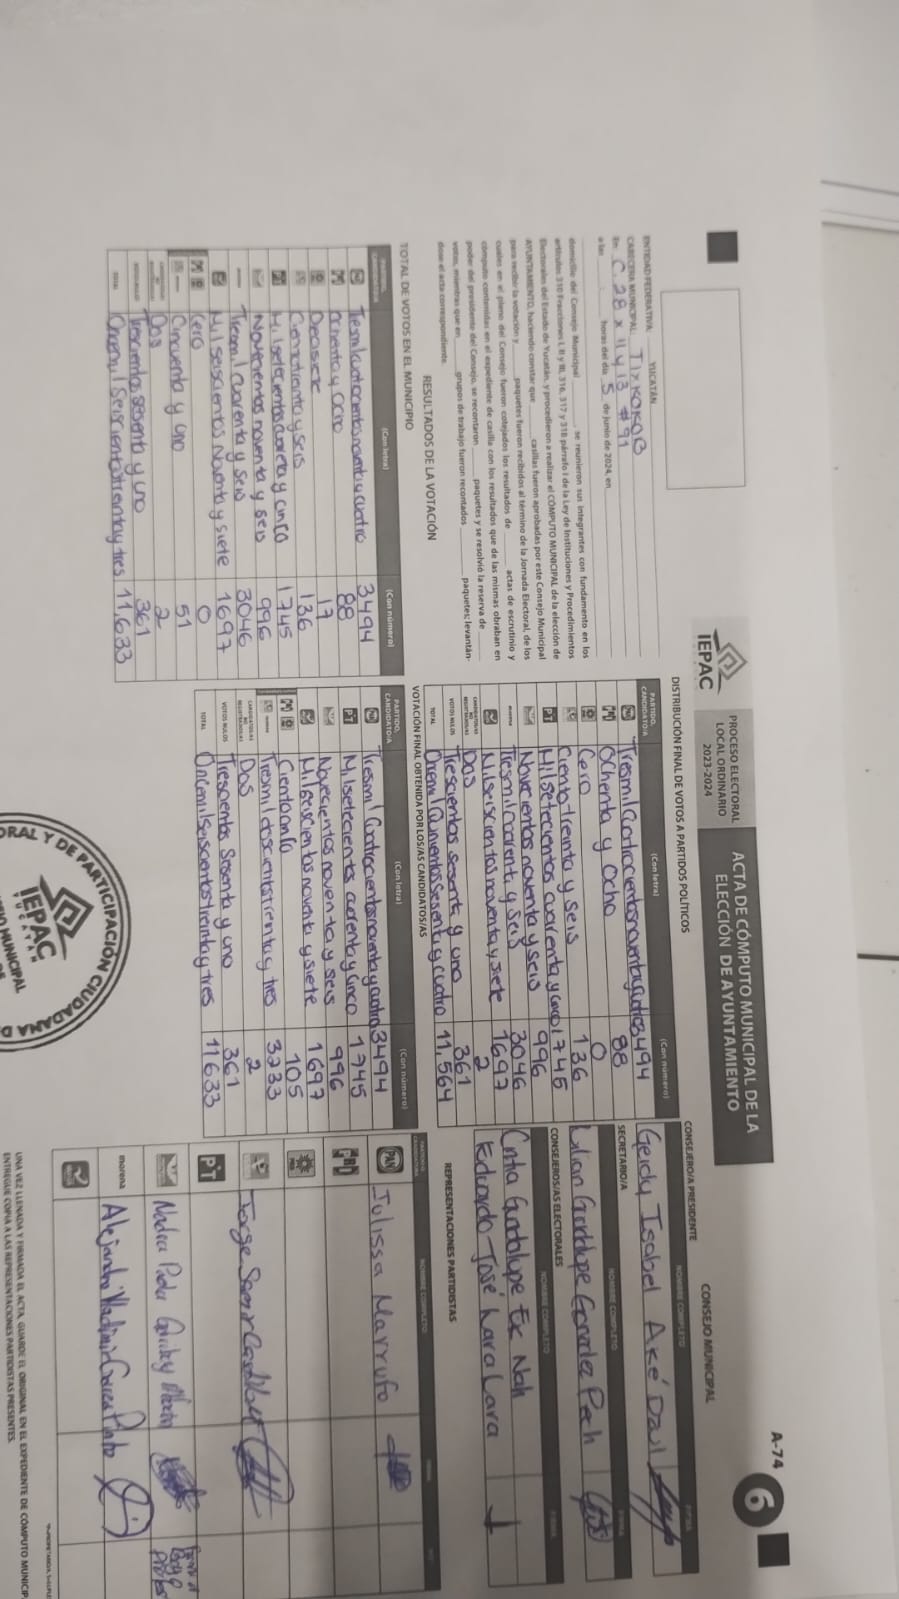 A-74
6
IEPAC
PROCESO ELECTORAL
LOCAL ORDINARIO
2023-2024
ACTA DE CÓMPUTO MUNICIPAL DE LA
ELECCIÓN DE AYUNTAMIENTO
ENTIDAD FEDERATIVA: YUCATÁN
CABECERA MUNICIPAL: TIXKOKOB
En: C. 28 x 11 y 13 # 91
a las horas del día 5 de junio de 2024, en
domicilio del Consejo Municipal se reunieron sus integrantes con fundamento en los
artículos 310 Fracciones I, II y III, 316, 317 y 318 párrafo I de la Ley de Instituciones y Procedimientos
Electorales del Estado de Yucatán, y procedieron a realizar el CÓMPUTO MUNICIPAL de la elección de
AYUNTAMIENTO, haciendo constar que casillas fueron aprobadas por este Consejo Municipal
para recibir la votación y paquetes fueron recibidos al término de la Jornada Electoral, de los
cuales en el pleno del Consejo fueron cotejados los resultados de actas de escrutinio y
cómputo contenidas en el expediente de casilla con los resultados que de las mismas obraban en
poder del presidente del Consejo, se recontaron paquetes y se resolvió la reserva de
votos, mientras que en grupos de trabajo fueron recontados paquetes; levantán-
dose el acta correspondiente.
RESULTADOS DE LA VOTACIÓN
TOTAL DE VOTOS EN EL MUNICIPIO
(Con letra) (Con número)
Tresmil cuatrocientos noventa y cuatro 3494
Ochenta y ocho 88
Diecisiete 17
Ciento treinta y seis 136
Mil setecientos cuarenta y cinco 1745
Novecientos noventa y seis 996
morena Tresmil cuarenta y seis 3046
Mil seiscientos noventa y siete 1697
Cero 0
Cincuenta y uno 51
Dos 2
Trescientos sesenta y uno 361
TOTAL Oncemil Seiscientos treinta y tres 11,633
DISTRIBUCIÓN FINAL DE VOTOS A PARTIDOS POLÍTICOS
PARTIDO, CANDIDATO/A (Con letra) (Con número)
Tresmil Cuatrocientos noventa y cuatro 3494
Ochenta y Ocho 88
Cero 0
Ciento treinta y seis 136
PT Mil setecientos cuarenta y cinco 1745
Novecientos noventa y seis 996
morena Tresmil Cuarenta y Seis 3046
Mil seiscientos noventa y siete 1697
CANDIDATOS/AS NO REGISTRADOS/AS Dos 2
VOTOS NULOS Trescientos sesenta y uno 361
TOTAL Oncemil Quinientos Sesenta y cuatro 11,564
VOTACIÓN FINAL OBTENIDA POR LOS/AS CANDIDATOS/AS
PARTIDO, CANDIDATO/A (Con letra) (Con número)
Tresmil Cuatrocientos noventa y cuatro 3494
PT Mil setecientos cuarenta y cinco 1745
Novecientos noventa y seis 996
Mil seiscientos noventa y siete 1697
Ciento cinco 105
Tresmil doscientos treinta y tres 3233
CANDIDATOS/AS NO REGISTRADOS/AS Dos 2
VOTOS NULOS Trescientos Sesenta y uno 361
TOTAL Oncemil seiscientos treinta y tres 11633
CONSEJO MUNICIPAL
CONSEJERO/A PRESIDENTE
NOMBRE COMPLETO FIRMA
Geidy Isabel Aké Dzul
SECRETARIO/A
NOMBRE COMPLETO FIRMA
Lilian Guadalupe González Pech
CONSEJEROS/AS ELECTORALES
NOMBRE COMPLETO FIRMA
Cintia Guadalupe Ek Noh
Eduardo José Lara Lara
REPRESENTACIONES PARTIDISTAS
NOMBRE COMPLETO FIRMA
PAN Julissa Marrufo
PRI
PRD
Jorge
PT
morena Alejandro Vladimir
UNA VEZ LLENADA Y FIRMADA EL ACTA, GUARDE EL ORIGINAL EN EL EXPEDIENTE DE CÓMPUTO MUNICIP
ENTREGUE COPIA A LAS REPRESENTACIONES PARTIDISTAS PRESENTES.
ORAL Y DE PARTICIPACIÓN CIUDADANA D
IEPAC
YUCATÁN
JO MUNICIPAL